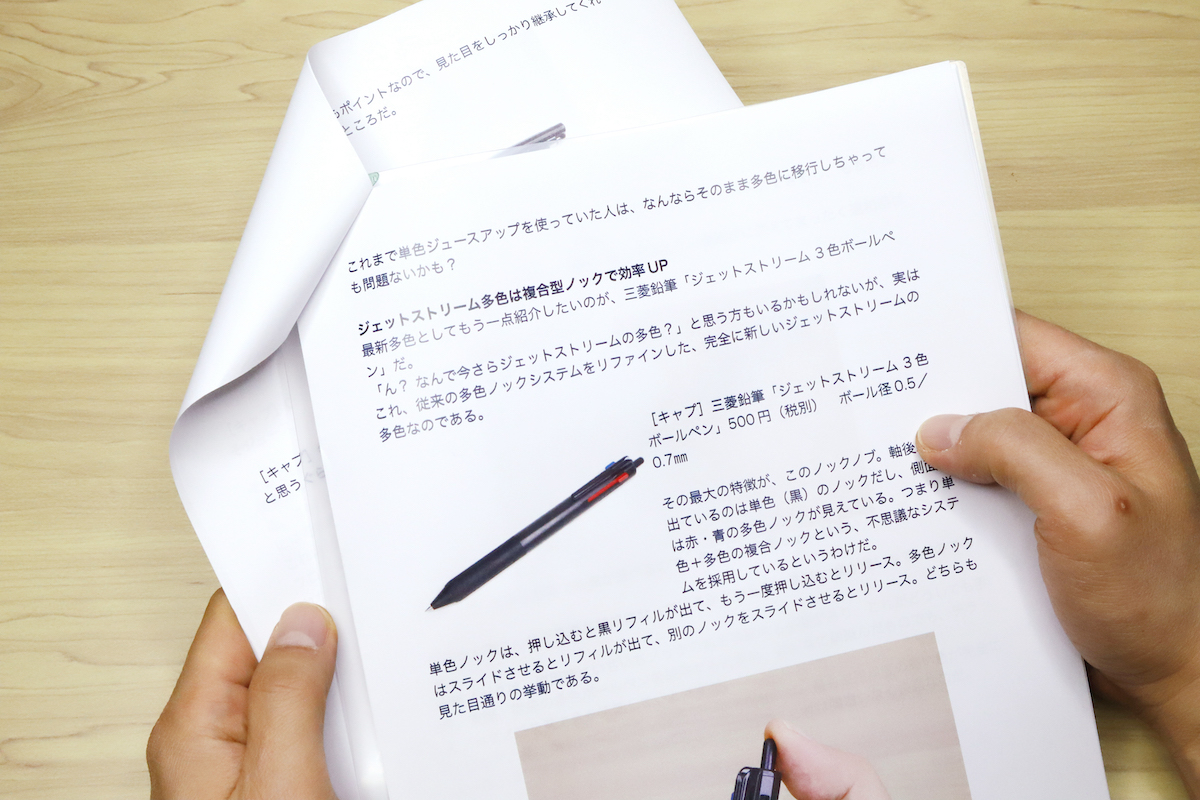 見た目をしっかり継承してくれ
ポイントなので、
ところだ。
これまで単色ジュースアップを使っていた人は、なんならそのまま多色に移行しちゃって
も問題ないかも?
ジェットストリーム多色は複合型ノックで効率UP
最新多色としてもう一点紹介したいのが、三菱鉛筆「ジェットストリーム3色ボールペ
ン」だ。
「ん? なんで今さらジェットストリームの多色?」と思う方もいるかもしれないが、実は
これ、従来の多色ノックシステムをリファインした、完全に新しいジェットストリームの
多色なのである。
[キャプ] 三菱鉛筆「ジェットストリーム3色
ボールペン」500円(税別) ボール径0.5/
0.7㎜
その最大の特徴が、このノックノブ。軸後
出ているのは単色(黒)のノックだし、側面
は赤・青の多色ノックが見えている。つまり単
色+多色の複合ノックという、不思議なシステ
ムを採用しているというわけだ。
単色ノックは、押し込むと黒リフィルが出て、もう一度押し込むとリリース。多色ノック
はスライドさせるとリフィルが出て、別のノックをスライドさせるとリリース。どちらも
見た目通りの挙動である。
[キャプ
と思う